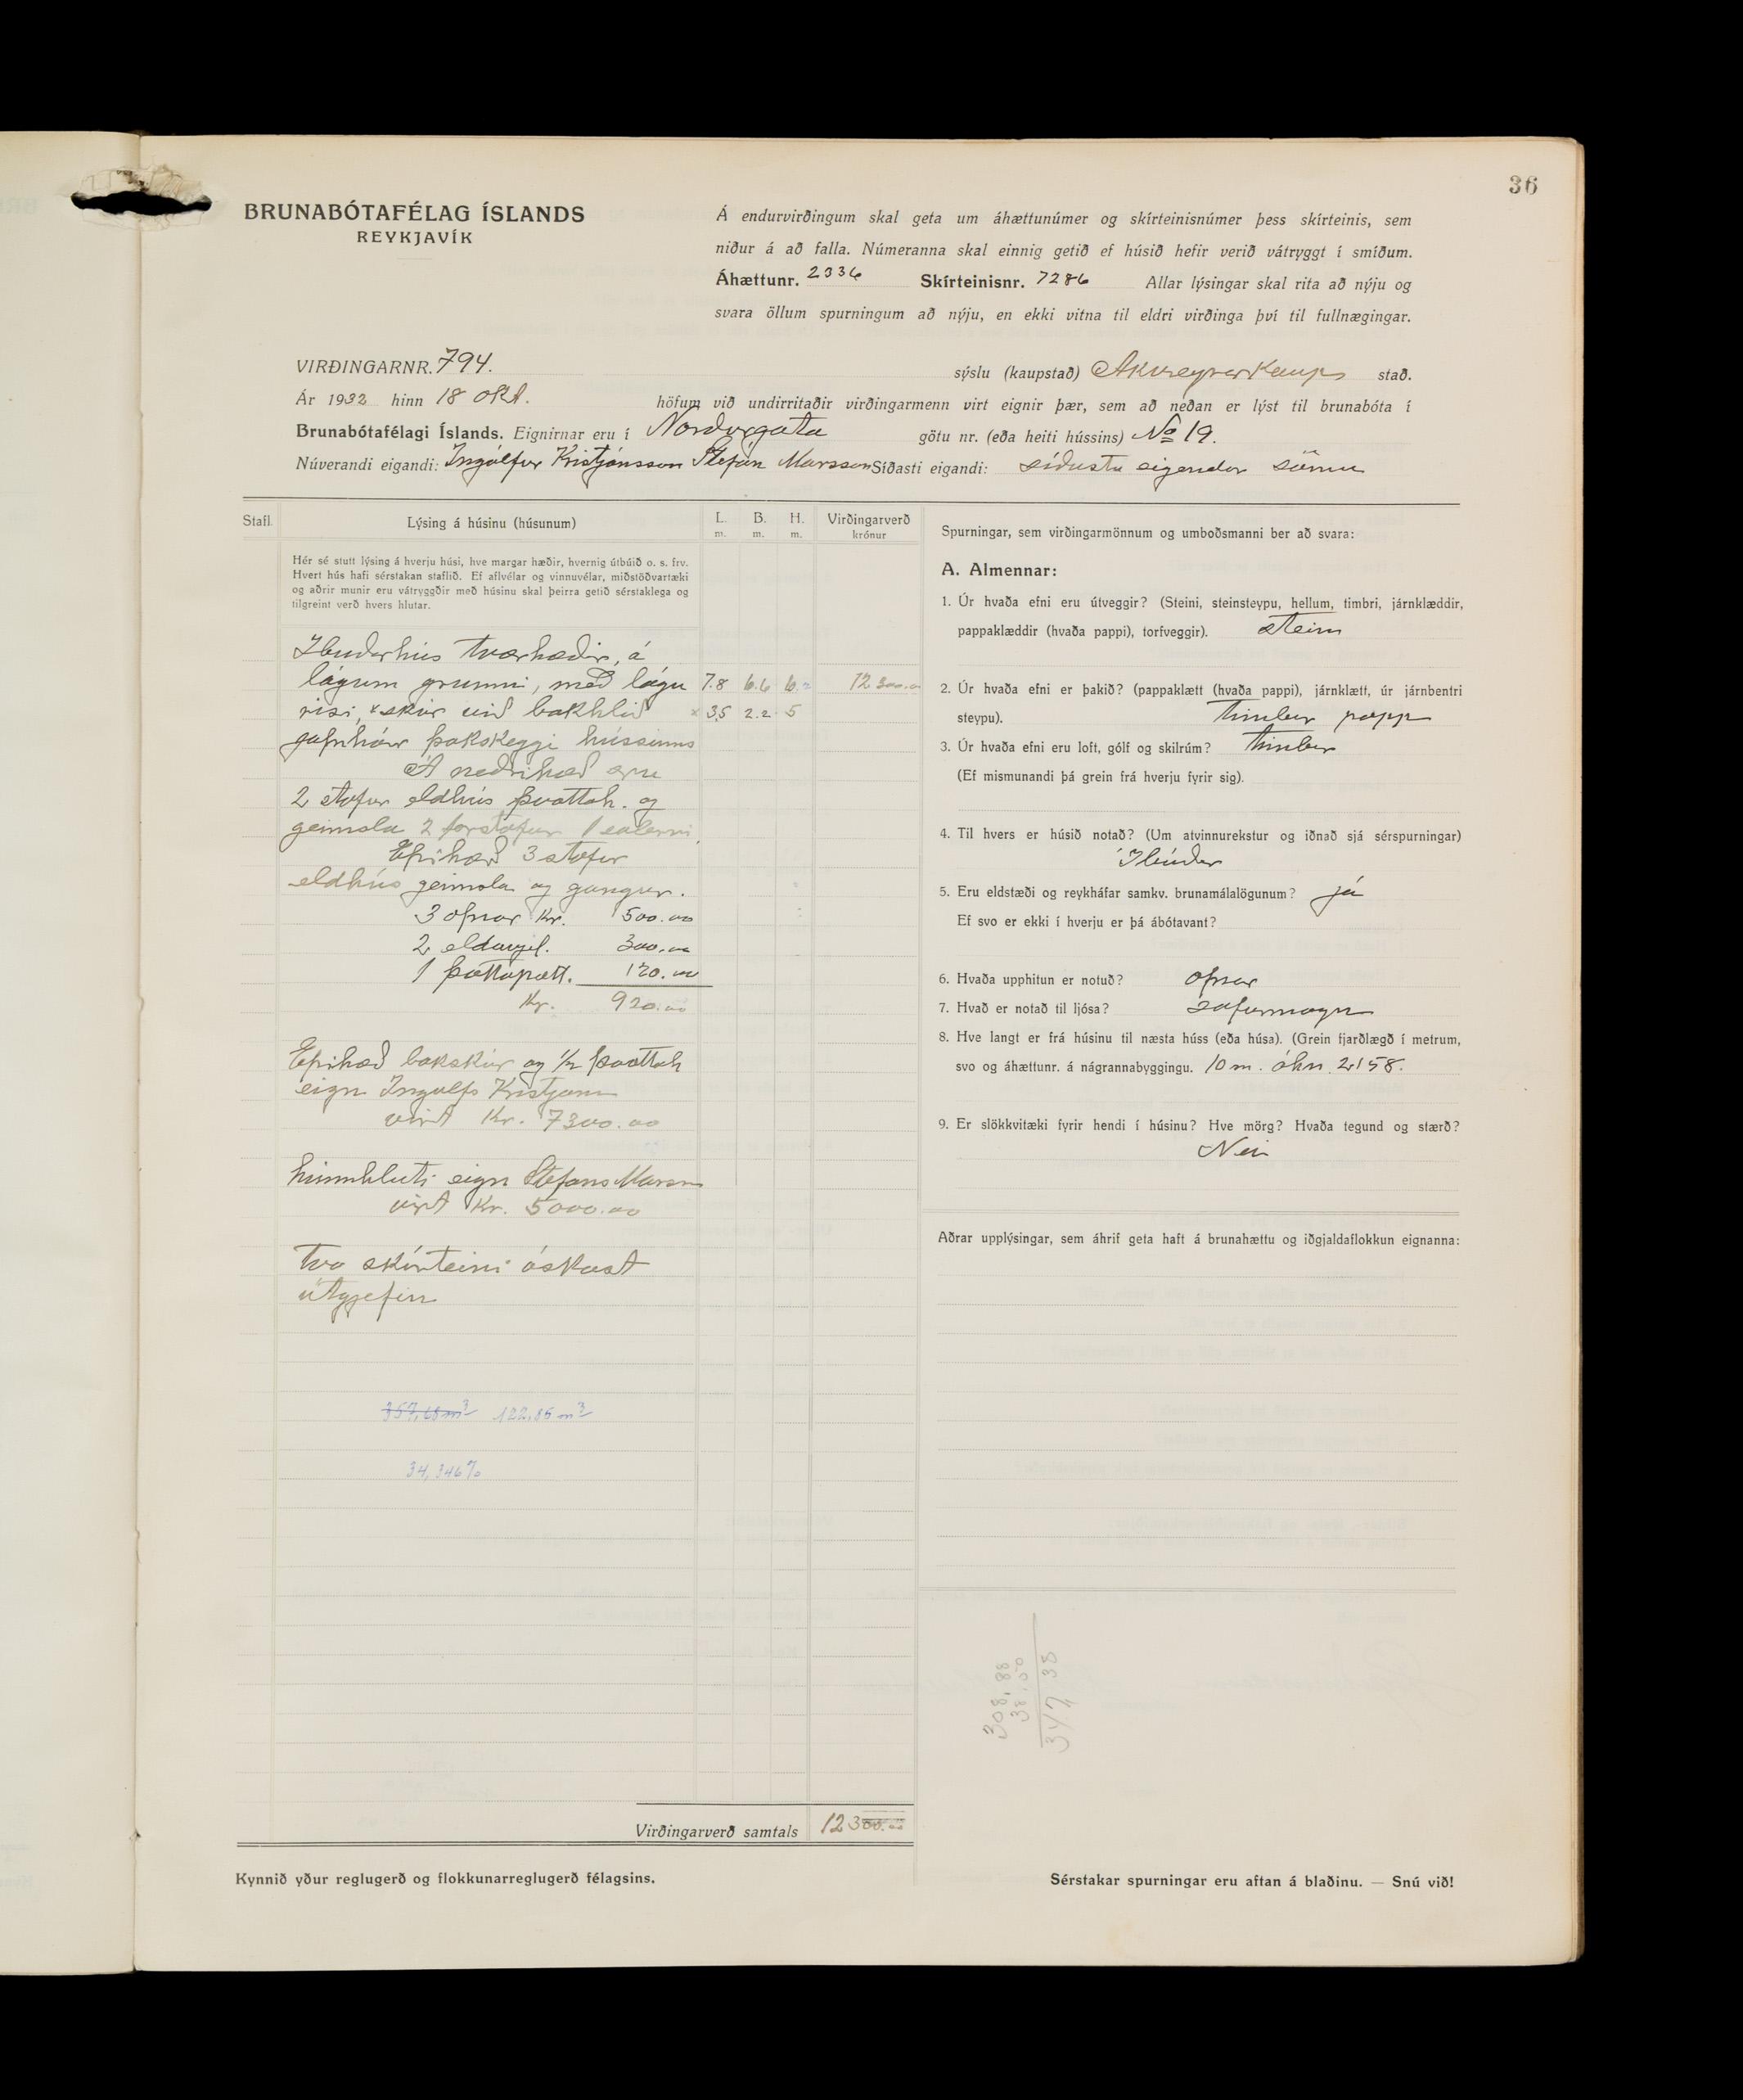 36
BRUNABÓTAFÉLAG ÍSLANDS
REYKJAVÍK
Á endurvirðingum skal geta um áhættunúmer og skírteinisnúmer þess skírteinis, sem
niður á að falla. Númeranna skal einnig getið ef húsið hefir verið vátryggt í smíðum.
Áhættunr. 2336 Skírteinisnr. 7286 Allar lýsingar skal rita að nýju og
svara öllum spurningum að nýju, en ekki vitna til eldri virðinga því til fullnægingar.
VIRÐINGARNR. 794. sýslu (kaupstað) Akureyrarkaups stað.
Ár 1932 hinn 18 okt. höfum við undirritaðir virðingarmenn virt eignir þær, sem að neðan er lýst til brunabóta í
Brunabótafélagi Íslands. Eignirnar eru í Norðurgata götu nr. (eða heiti hússins) No 19.
Núverandi eigandi: Ingólfur Kristjánsson Stefán Marsson Síðasti eigandi: síðustu eigendur sömu
Stafl. Lýsing á húsinu (húsunum) L. m. B. m. H. m. Virðingarverð krónur
Hér sé stutt lýsing á hverju húsi, hve margar hæðir, hvernig útbúið o. s. frv.
Hvert hús hafi sérstakan staflið. Ef aflvélar og vinnuvélar, miðstöðvartæki
og aðrir munir eru vátryggðir með húsinu skal þeirra getið sérstaklega og
tilgreint verð hvers hlutar.
Íbúðarhús tvær hæðir, á
lágum grunni, með lágu 7.8 6.6 6. 12 300.00
risi, x skúr við bakhlið x 3.5 2.2 5
jafnháur þakskeggi hússins
Á neðrihæð eru
2 stofur eldhús þvottah. og
geimsla 2 forstofur 1 salerni,
Efrihæð 3 stofur
eldhús geimsla og gangur.
3 ofnar Kr. 500.00
2 eldavjel. 300.00
1 þvottapott. 120.00
Kr. 920.00
Efrihæð bakskúr og 1/2 þvottah
eign Ingolfs Kristjáns
virt Kr. 7300.00
hinn hluti eign Stefans Marsson
virt Kr. 5000.00
Tvo skírteini óskast
útgefin
357,68 m3 122,85 m3
34,346%
Virðingarverð samtals 12300.00
Spurningar, sem virðingarmönnum og umboðsmanni ber að svara:
A. Almennar:
1. Úr hvaða efni eru útveggir? (Steini, steinsteypu, hellum, timbri, járnklæddir,
pappaklæddir (hvaða pappi), torfveggir). steini
2. Úr hvaða efni er þakið? (pappaklætt (hvaða pappi), járnklætt, úr járnbentri
steypu). timbur papp
3. Úr hvaða efni eru loft, gólf og skilrúm? timbur
(Ef mismunandi þá grein frá hverju fyrir sig).
4. Til hvers er húsið notað? (Um atvinnurekstur og iðnað sjá sérspurningar)
Íbúðar
5. Eru eldstæði og reykháfar samkv. brunamálalögunum? já
Ef svo er ekki í hverju er þá ábótavant?
6. Hvaða upphitun er notuð? ofnar
7. Hvað er notað til ljósa? rafurmagn
8. Hve langt er frá húsinu til næsta húss (eða húsa). (Grein fjarðlægð í metrum,
svo og áhættunr. á nágrannabyggingu. 10 m. áhn. 2158.
9. Er slökkvitæki fyrir hendi í húsinu? Hve mörg? Hvaða tegund og stærð?
Nei
Aðrar upplýsingar, sem áhrif geta haft á brunahættu og iðgjaldaflokkun eignanna:
308,88
38,50
347 38
Kynnið yður reglugerð og flokkunarreglugerð félagsins.
Sérstakar spurningar eru aftan á blaðinu. — Snú við!